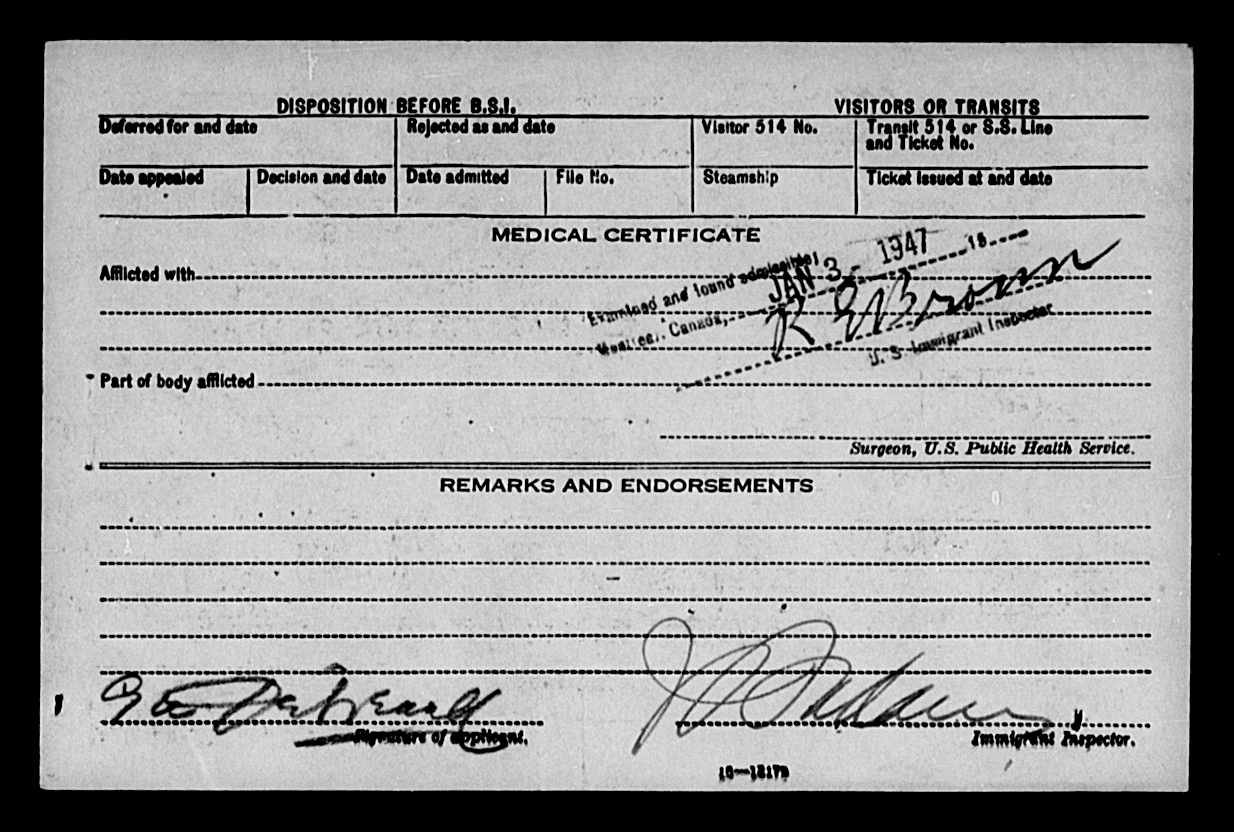 DISPOSITION BEFORE B.S.I. VISITORS OR TRANSITS
Deferred for and date Rejected as and date Visitor 514 No. Transit 514 or S.S. Line and Ticket No.
Date appealed Decision and date Date admitted File No. Steamship Ticket issued at and date
MEDICAL CERTIFICATE
Afflicted with
Examined and found admissible
JAN 3 - 1947 19
Montreal, Canada,
R E Brown
U. S. Immigrant Inspector
Part of body afflicted
Surgeon, U.S. Public Health Service.
REMARKS AND ENDORSEMENTS
Geo
Signature of applicant.
Immigrant Inspector.